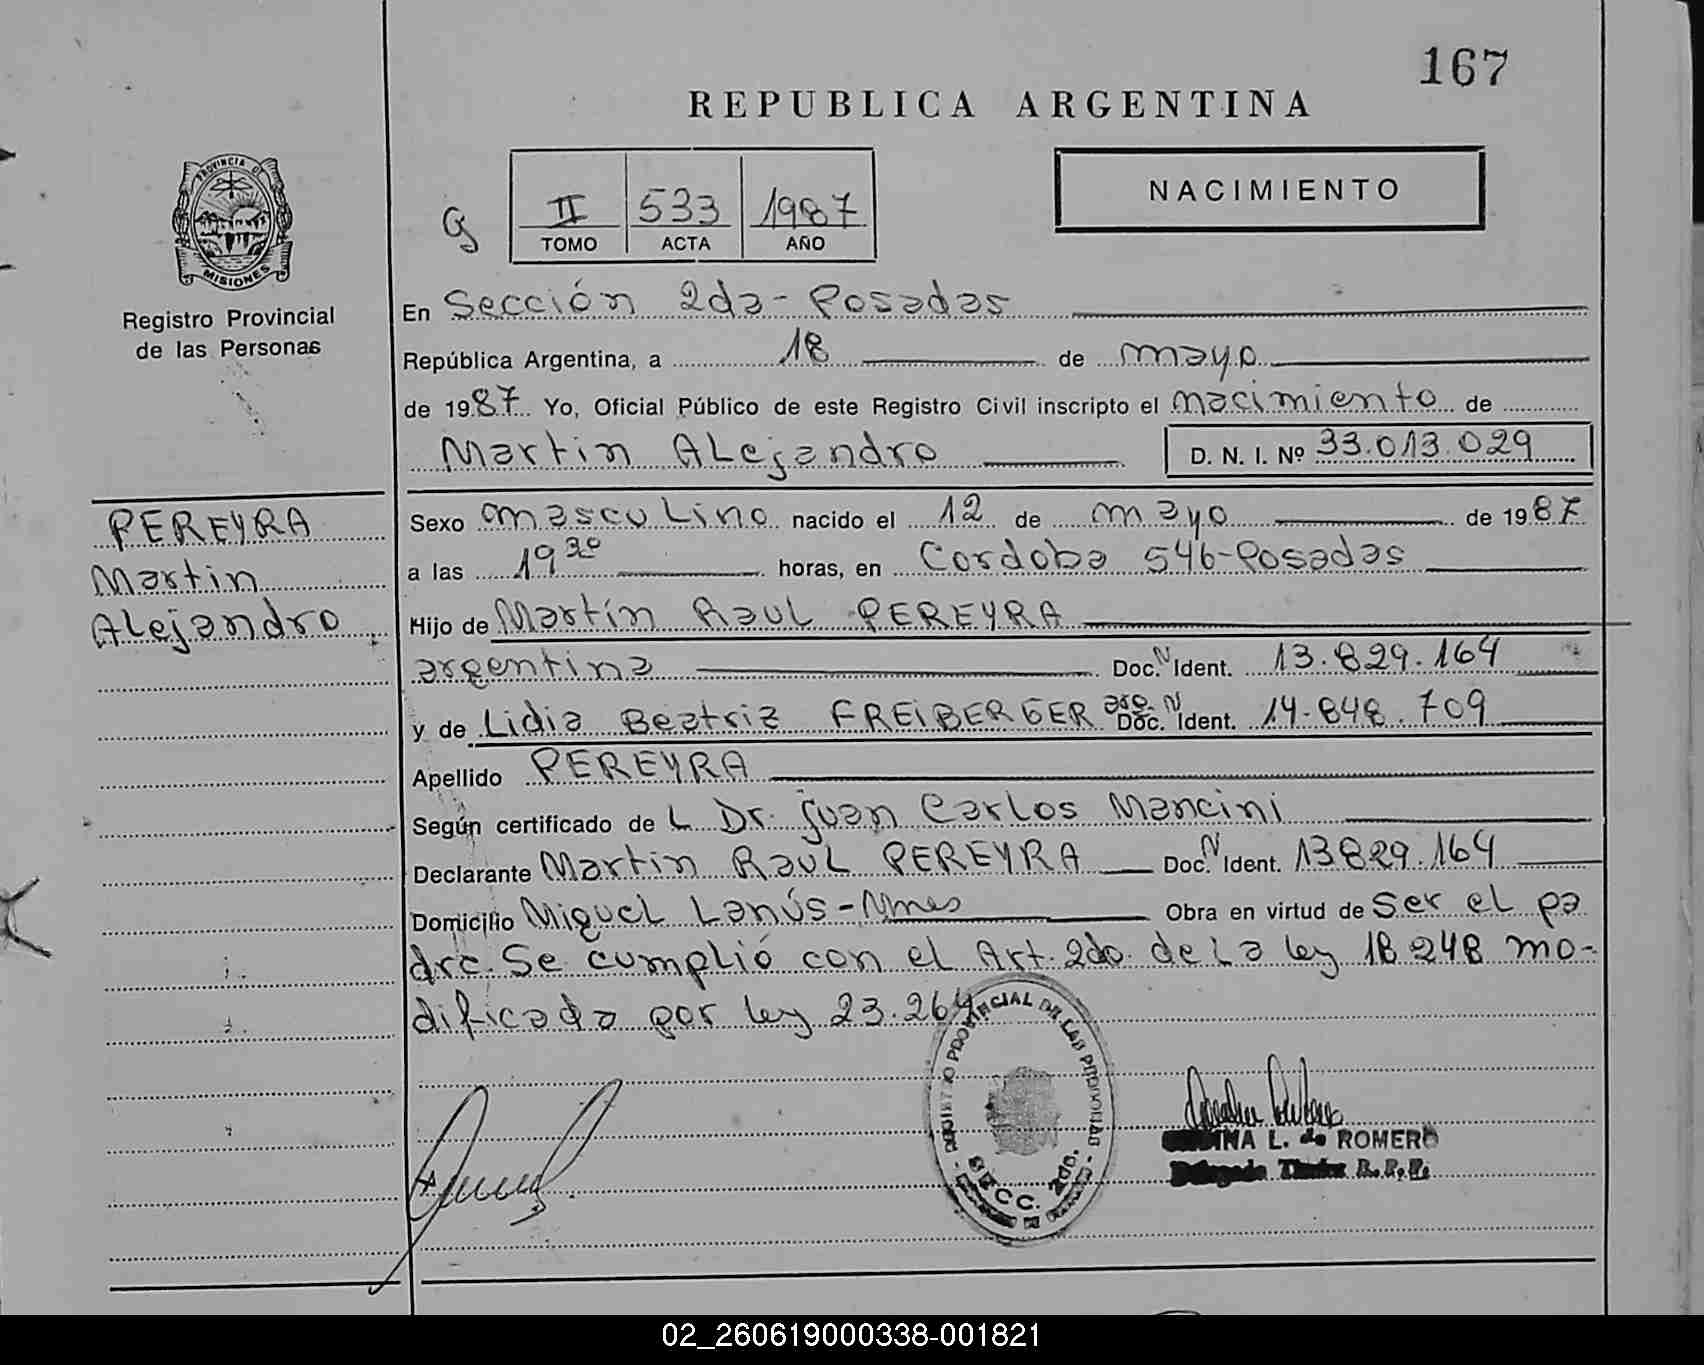 167
REPUBLICA ARGENTINA
PROVINCIA D
MISIONES
Registro Provincial
de las Personas
g
II 533 1987
TOMO ACTA AÑO
NACIMIENTO
En Sección 2da- Posadas
República Argentina, a 18 de mayo
de 1987. Yo, Oficial Público de este Registro Civil inscripto el nacimiento de
Martin Alejandro D. N. I. Nº 33.013.029
PEREYRA
Martin
Alejandro
Sexo masculino nacido el 12 de mayo de 1987
a las 19 30 horas, en Cordoba 546-Posadas
Hijo de Martín Raul PEREYRA
argentina Doc. N Ident. 13.829.164
y de Lidia Beatriz FREIBERGER arg. Doc. N Ident. 14.848.709
Apellido PEREYRA
Según certificado de L Dr. Juan Carlos Mancini
Declarante Martin Raul PEREYRA Doc. N Ident. 13829.164
Domicilio Miguel Lanús-Mnes Obra en virtud de ser el pa
dre. Se cumplió con el Art. 2do de La ley 18248 mo-
dificada por ley 23.264
REGISTRO PROVINCIAL DE LAS PERSONAS
SECC. 2da.
L. de ROMERO
Delegada Titular R.P.P.
02_260619000338-001821